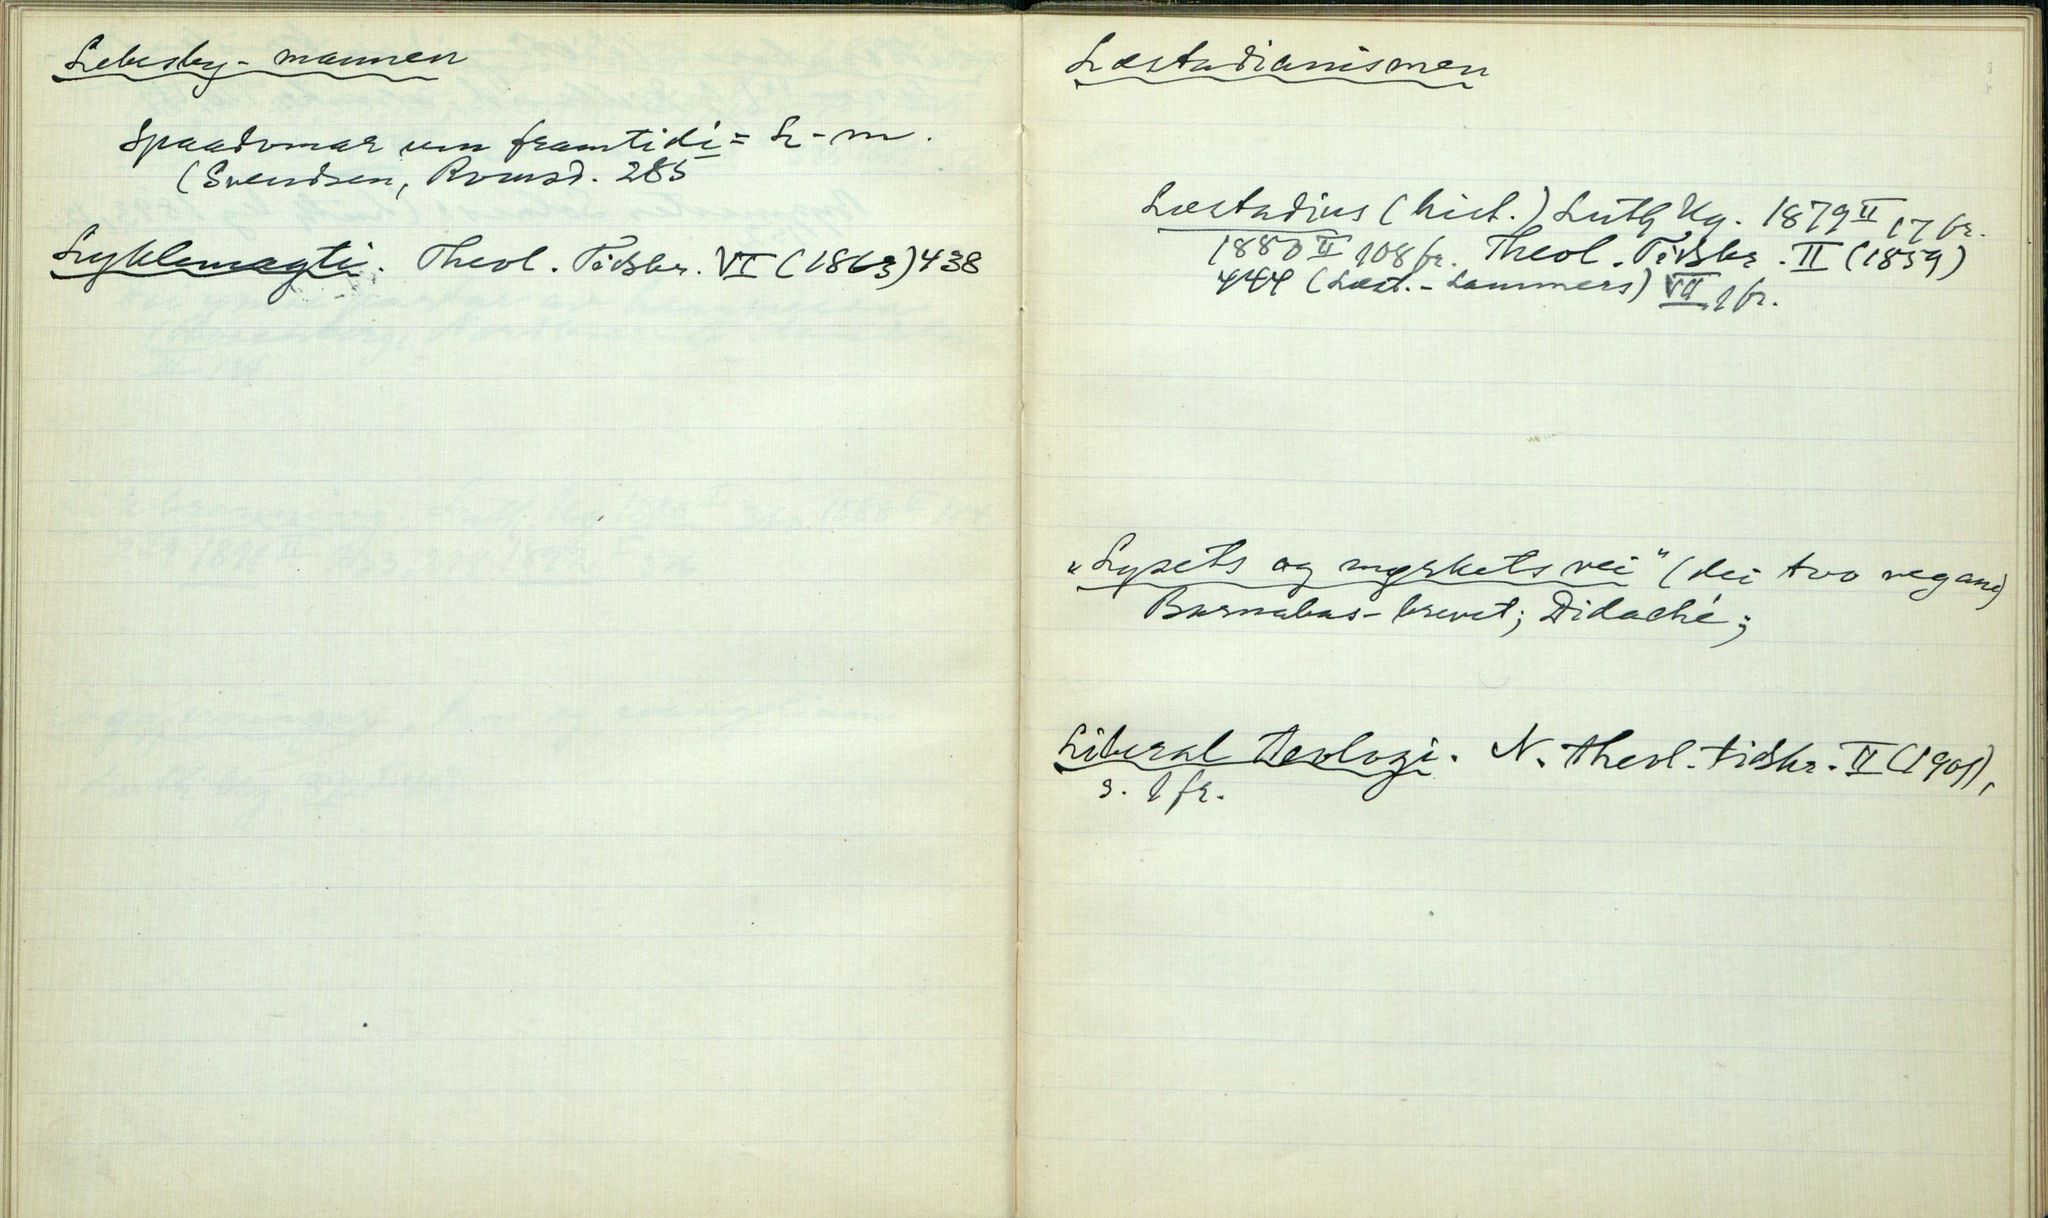 Lebesby-mannen
Spaadomar um framtidi = L-m.
(Svendsen, Romsd. 285
Lyklemagti. Theol. Tidskr. VI (1863) 438
Læstadianismen
Læstadius (hist.) Luth Kg. 1879 II 17 fr.
1880 II 108 fr. Theol. Tidskr. II (1859)
444 (Læst.-Lammers) VII 1 fr.
"Lysets og mørkets vei" (dei tvo vegane)
Barnabas-brevet; Didaché;
Liberal teologi. N. theol. tidskr. II (1901),
s. 1 fr.